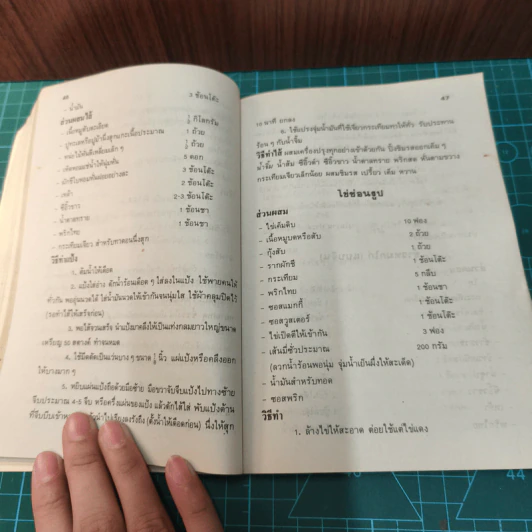 46
- น้ำมัน 3 ช้อนโต๊ะ
ส่วนผสมไส้
- เนื้อหมูสับละเอียด ½ กิโลกรัม
- กุ้งสับ 1 ถ้วย
- หน่อไม้ต้มสับเหลี่ยมเล็ก ๆ ½ ถ้วย
- เห็ดหอมแช่น้ำให้นุ่มหั่น 5 ดอก
- ผักชีใบหอมหั่นฝอยอย่างละ 3 ช้อนโต๊ะ
- เหล้า 2 ช้อนโต๊ะ
- ซีอิ๊วขาว 2-3 ช้อนโต๊ะ
- น้ำตาลทราย 1 ช้อนชา
- พริกไทย 1 ช้อนชา
- กระเทียมเจียว สำหรับทาตอนนึ่งสุก
วิธีทำแป้ง
1. ต้มน้ำให้เดือด
2. แป้งใส่อ่าง ตักน้ำร้อนเดือด ๆ ใส่ลงในแป้ง ใช้พายคนให้
ทั่วกัน พออุ่นนวดได้ ใส่น้ำมันนวดให้เข้ากันจนนุ่มใส ใช้ผ้าคลุมปิดไว้
(รอทำไส้ให้เสร็จก่อน)
3. พอไส้จวนเสร็จ นำแป้งมาคลึงให้เป็นแท่งกลมยาวใหญ่ขนาด
เหรียญ 50 สตางค์ ทำจนหมด
4. ใช้มีดตัดเป็นแว่นบาง ๆ ขนาด ½ นิ้ว แผ่แป้งหรือคลึงออก
ให้บางมาก ๆ
5. หยิบแผ่นแป้งถือด้วยมือซ้าย มือขวาจับจีบแป้งไปทางซ้าย
จีบประมาณ 4-5 จีบ หรือครึ่งแผ่นของแป้ง แล้วตักไส้ใส่ พับแป้งด้าน
ที่จีบนึ่งให้สุก
47
10 นาที ยกลง
6. ใช้แปรงจุ่มน้ำมันที่ใช้เจียวกระเทียมทาให้ทั่ว รับประทาน
ร้อน ๆ กับน้ำจิ้ม
วิธีทำไส้ ผสมเครื่องปรุงทุกอย่างเข้าด้วยกัน ปิ้งชิมรสออกเค็ม ๆ
น้ำจิ้ม น้ำส้ม ซีอิ๊วดำ ซีอิ๊วขาว น้ำตาลทราย พริกสด หั่นตามขวาง
กระเทียมเจียวเล็กน้อย ผสมชิมรส เปรี้ยว เค็ม หวาน
ไข่ซ่อนรูป
ส่วนผสม
- ไข่เค็มดิบ 10 ฟอง
- เนื้อหมูบดหรือสับ 3 ถ้วย
- กุ้งสับ 1 ถ้วย
- รากผักชี 1 ช้อนโต๊ะ
- กระเทียม 5 กลีบ
- พริกไทย 1 ช้อนชา
- ซอสแมกกี้ 1 ช้อนโต๊ะ
- ซอสวูสเตอร์ 1 ช้อนโต๊ะ
- ไข่เป็ดตีให้เข้ากัน 3 ฟอง
- เส้นหมี่ซั่วประมาณ 200 กรัม
(ลวกน้ำร้อนพอนุ่ม จุ่มน้ำเย็นผึ่งให้สะเด็ด)
- น้ำมันสำหรับทอด
- ซอสพริก
วิธีทำ
1. ล้างไข่ให้สะอาด ต่อยใช้แต่ไข่แดง